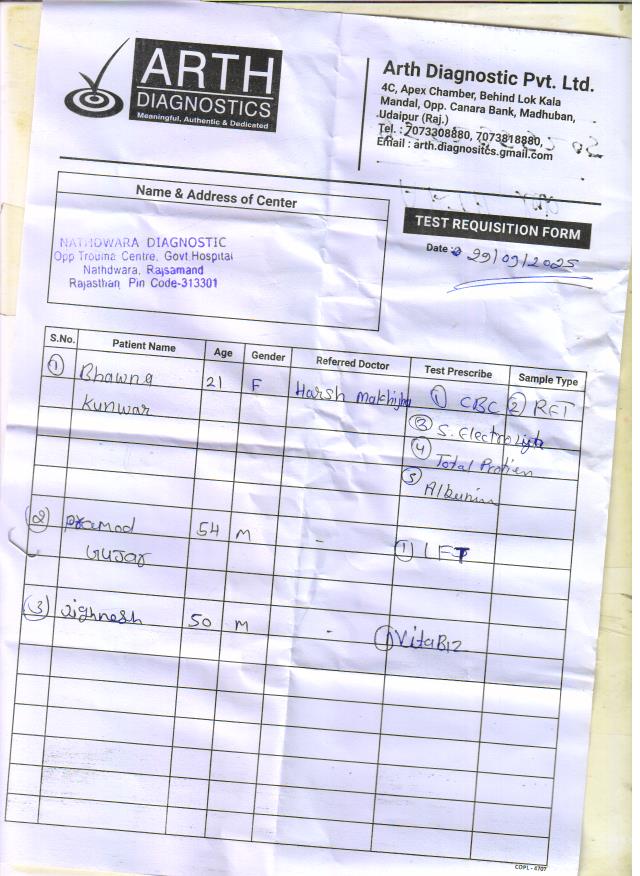 ARTH
DIAGNOSTICS
Meaningful, Authentic & Dedicated
Arth Diagnostic Pvt. Ltd.
4C, Apex Chamber, Behind Lok Kala
Mandal, Opp. Canara Bank, Madhuban,
Udaipur (Raj.)
Tel. : 7073308880, 7073818880,
Email : arth.diagnositcs.gmail.com
Name & Address of Center
TEST REQUISITION FORM
NATHDWARA DIAGNOSTIC
Opp Trouma Centre, Govt Hospital
Nathdwara, Rajsamand
Rajasthan Pin Code-313301
Date : 29/09/2025
S.No. Patient Name Age Gender Referred Doctor Test Prescribe Sample Type
① Bhawna 21 F Harsh Makhija ① CBC ② RFT
Kunwar ③ S. Electrolyte
④ Total Protien
⑤ Albumin
② Pramod 54 M - ① LFT
Gujar
③ Jighnesh 50 M - ① Vita B12
COPL - 4707